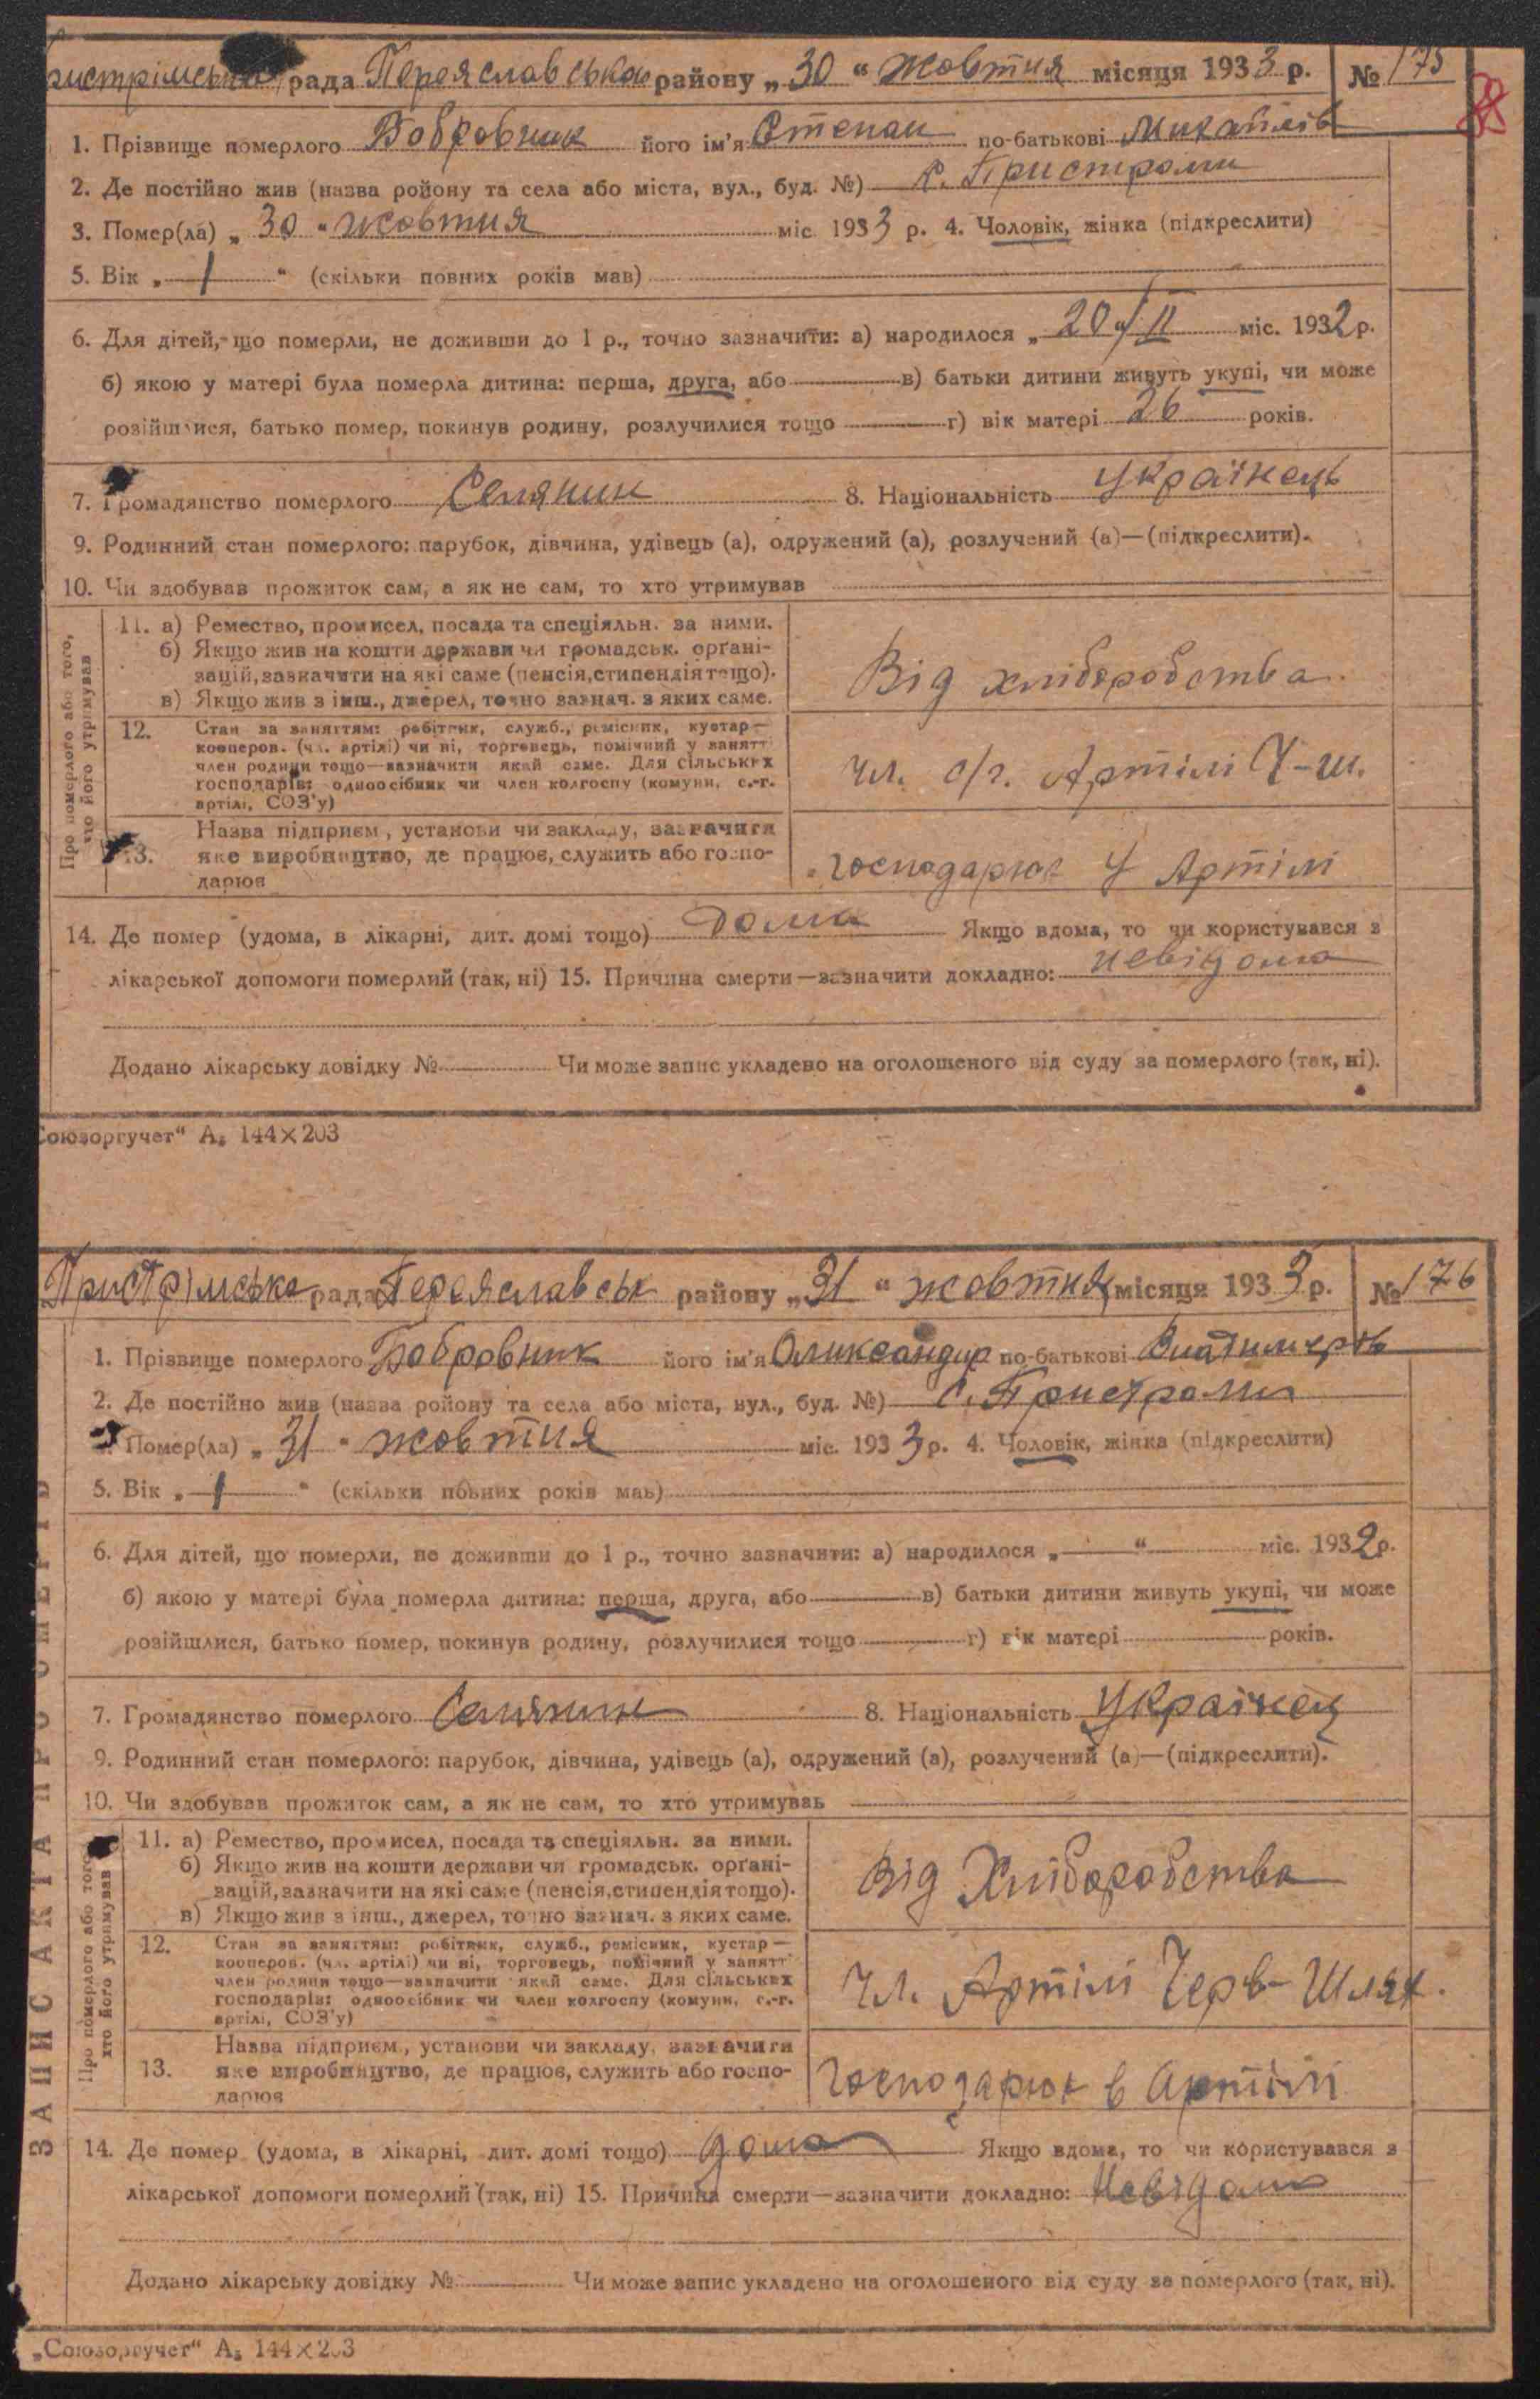 Пристрімська рада Переяславською району „ 30 “ жовтня місяця 1933 р. № 175
1. Прізвище померлого Бобровник його ім'я Степан по-батькові Михайлів
2. Де постійно жив (назва ройону та села або міста, вул., буд. №) с. Пристроми
3. Помер(ла) „ 30 “ жовтня міс 1933 р. 4. Чоловік, жінка (підкреслити)
5. Вік „ 1 “ (скільки повних років мав)
6. Для дітей, що померли, не доживши до 1 р., точно зазначити: а) народилося „ 20 “/II міс. 1932 р.
б) якою у матері була померла дитина: перша, друга, або в) батьки дитини живуть укупі, чи може
розійшлися, батько помер, покинув родину, розлучилися тощо г) вік матері 26 років.
7. Громадянство померлого Селянин 8. Національність Українець
9. Родинний стан померлого: парубок, дівчина, удівець (а), одружений (а), розлучений (а)—(підкреслити).
10. Чи здобував прожиток сам, а як не сам, то хто утримував
Про померлого або того,
що його утримував
11. а) Ремество, промисел, посада та спеціяльн. за ними.
б) Якщо жив на кошти держави чи громадськ. орґані-
зацій, зазначити на які саме (пенсія, стипендія тощо).
в) Якщо жив з інш., джерел, точно зазнач. з яких саме.
Від хліборобства.
12. Стан за заняттям: робітник, служб., ремісник, кустар—
кооперов. (чл. артілі) чи ні, торговець, помічний у занятті
член родини тощо—зазначити який саме. Для сільських
господарів: одноосібник чи член колгоспу (комуни, с.-г.
артілі, СОЗ'у)
Чл. с/г. Артілі Ч-ш.
13. Назва підприєм, установи чи закладу, зазначити
яке виробництво, де працює, служить або госпо-
дарює
господарює у Артілі
14. Де помер (удома, в лікарні, дит. домі тощо) Дома Якщо вдома, то чи користувався з
лікарської допомоги померлий (так, ні) 15. Причина смерти—зазначити докладно: невідома
Додано лікарську довідку № Чи може запис укладено на оголошеного від суду за померлого (так, ні).
Союзоргучет“ А₅ 144×203
Пристрімська рада Переяславськ району „ 31 “ жовтня місяця 1933 р. № 176
1. Прізвище померлого Бобровник його ім'я Олександр по-батькові
2. Де постійно жив (назва ройону та села або міста, вул., буд. №) с. Пристроми
Помер(ла) „ 31 “ жовтня міс. 1933 р. 4. Чоловік, жінка (підкреслити)
5. Вік „ 1 “ (скільки повних років мав)
6. Для дітей, що померли, не доживши до 1 р., точно зазначити: а) народилося „ “ міс. 1932 р.
б) якою у матері була померла дитина: перша, друга, або в) батьки дитини живуть укупі, чи може
розійшлися, батько помер, покинув родину, розлучилися тощо г) вік матері років.
7. Громадянство померлого Селянин 8. Національність Українец
9. Родинний стан померлого: парубок, дівчина, удівець (а), одружений (а), розлучений (а)—(підкреслити).
10. Чи здобував прожиток сам, а як не сам, то хто утримував
ЗАПИС АКТА ПРО СМЕРТЬ
Про померлого або того
хто його утримував
11. а) Ремество, промисел, посада та спеціяльн. за ними.
б) Якщо жив на кошти держави чи громадськ. орґані-
зацій, зазначити на які саме (пенсія, стипендія тощо).
в) Якщо жив з інш., джерел, точно зазнач. з яких саме.
Від Хліборобства
12. Стан за заняттям: робітник, служб., ремісник, кустар—
кооперов. (чл. артілі) чи ні, торговець, помічний у занятті
член родини тощо—зазначити який саме. Для сільських
господарів: одноосібник чи член колгоспу (комуни, с.-г.
артілі, СОЗ'у)
Чл. Артілі Черв-Шлях.
13. Назва підприєм., установи чи закладу, зазначити
яке виробництво, де працює, служить або госпо-
дарює
Господарює в Артілі
14. Де помер (удома, в лікарні, дит. домі тощо) дома Якщо вдома, то чи користувався з
лікарської допомоги померлий (так, ні) 15. Причина смерти—зазначити докладно: Невідома
Додано лікарську довідку № Чи може запис укладено на оголошеного від суду за померлого (так, ні).
„Союзоргучет“ А₅ 144×203